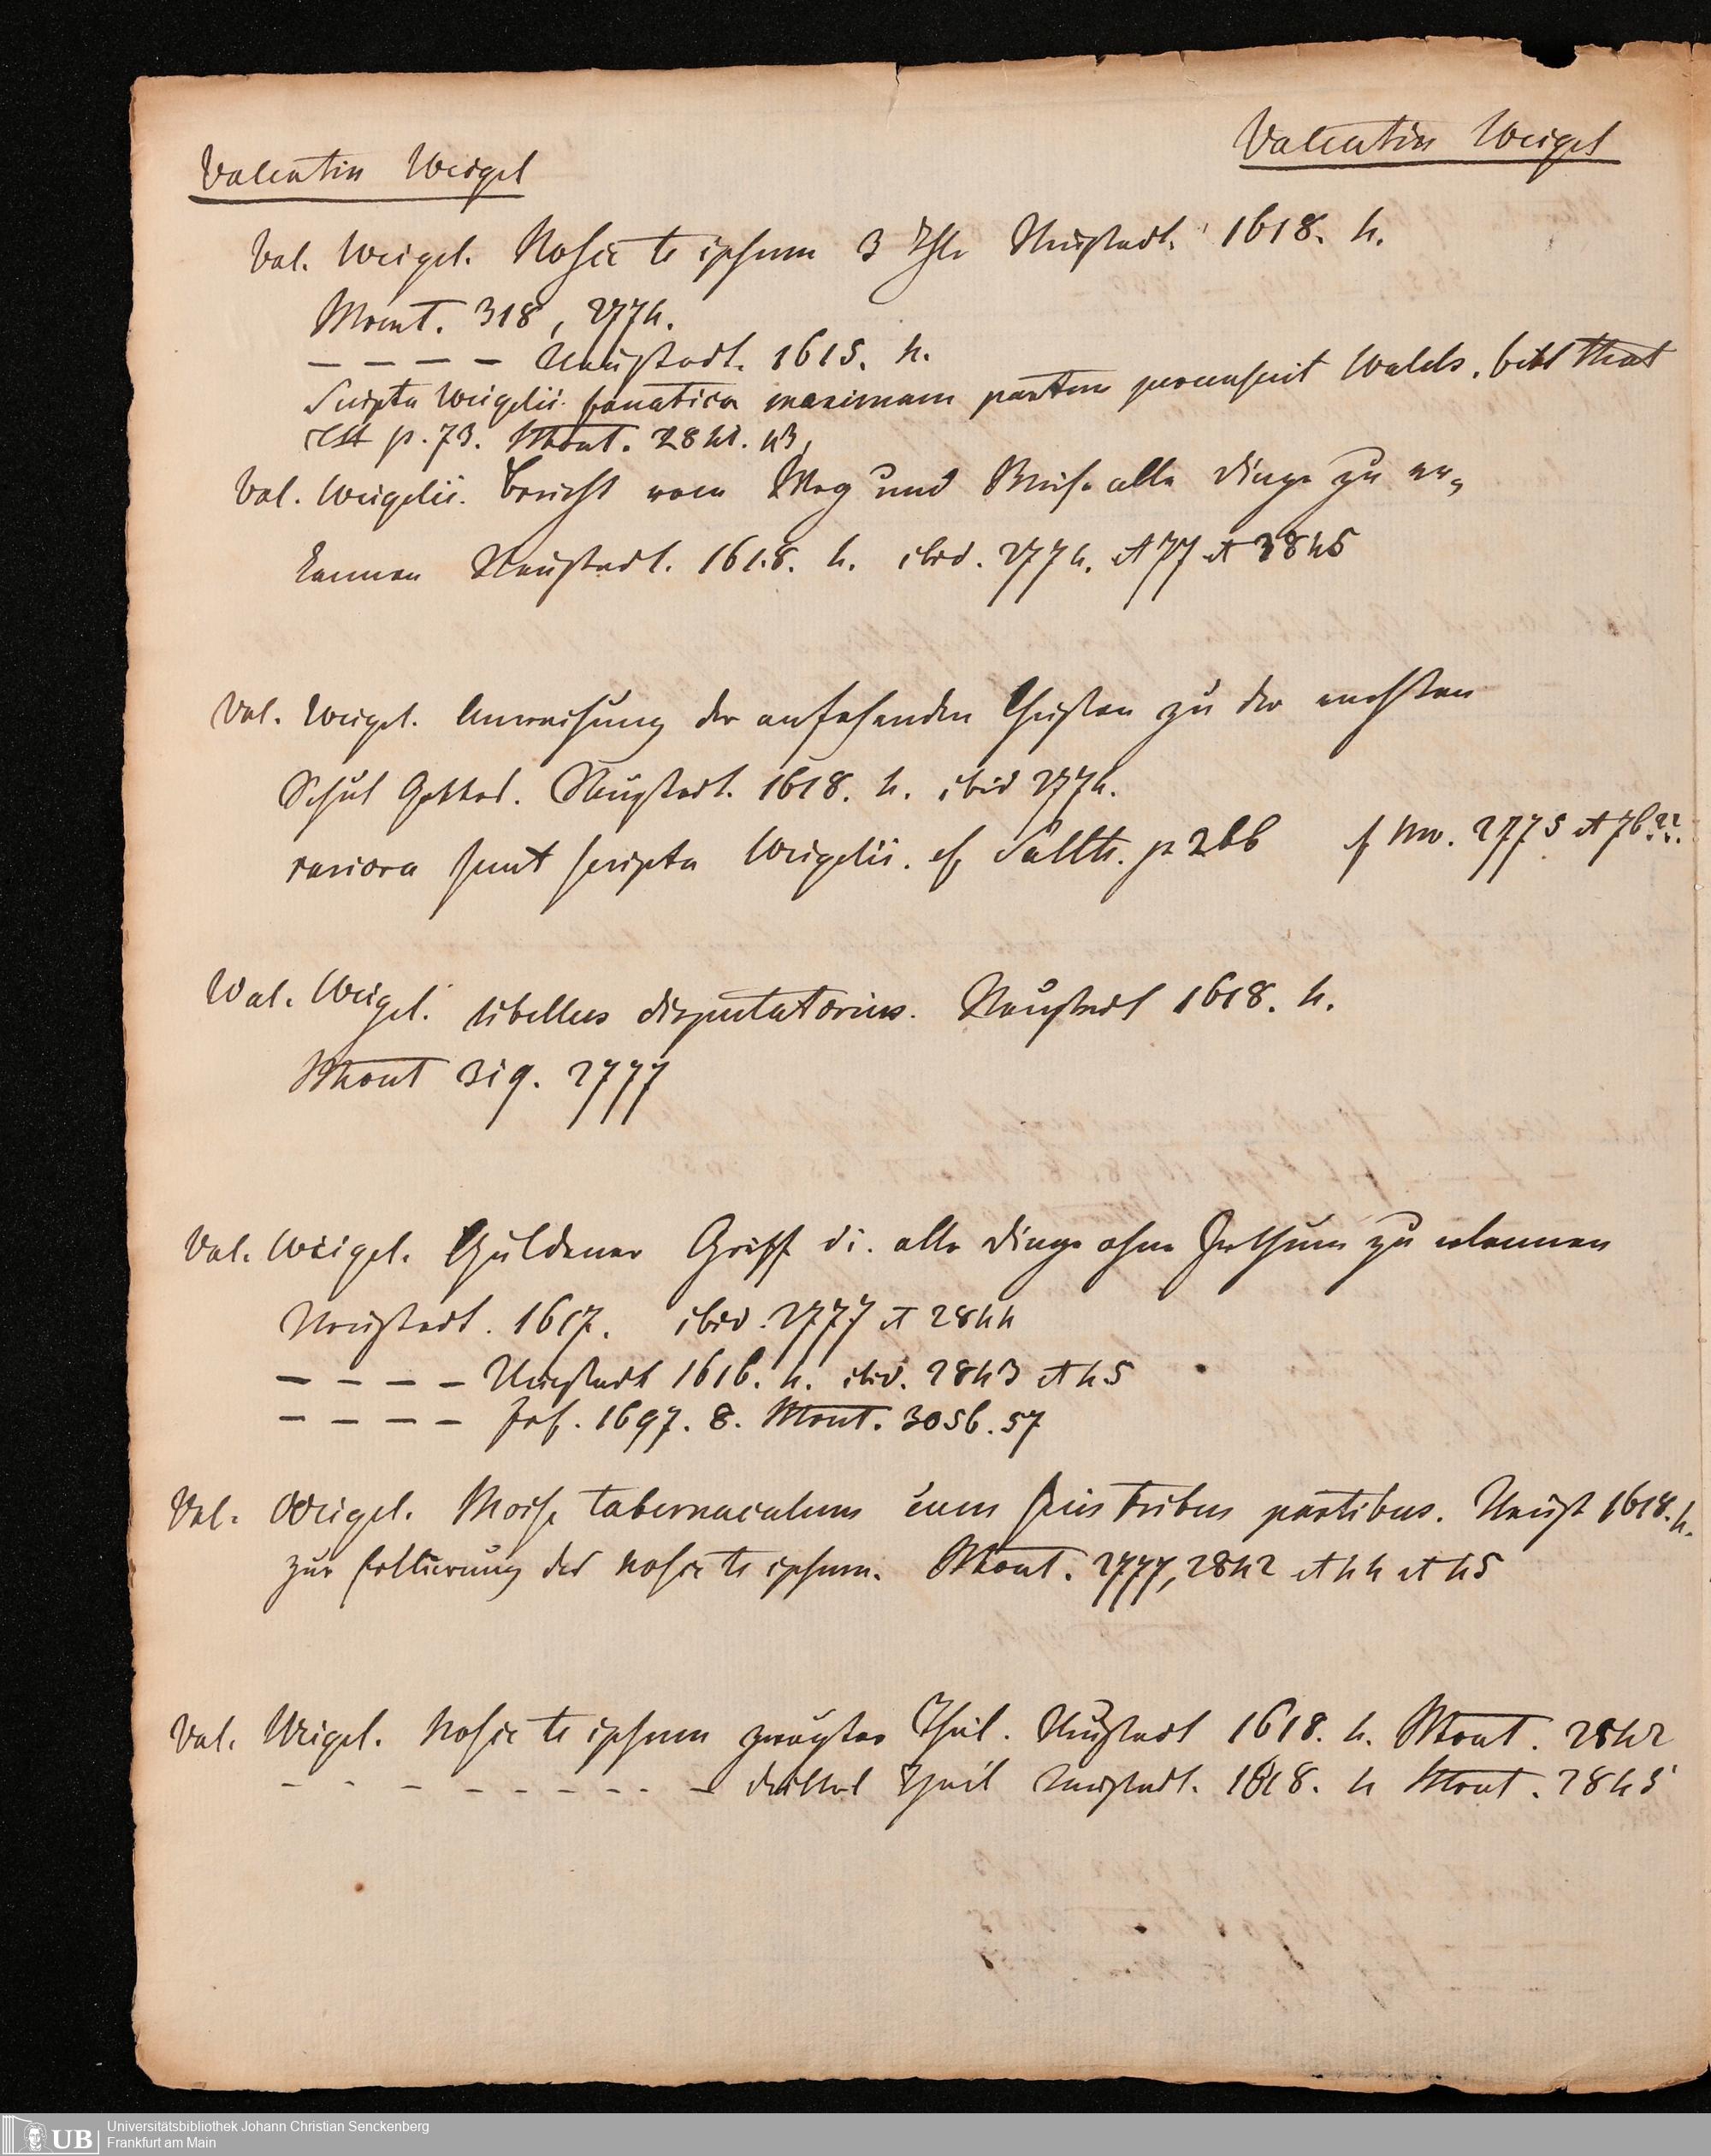 Valentin Weigel
Valentin Weigel
Val. Weigel. Nosce te ipsum 3 Thle Neustadt. 1618. 4.
Mont. 318, 2774.
– – – – Neustadt. 1615. 4.
Scripta Weigelii fanatica maximam partem recensuit Walch. bibl theol
p. 73. Mont. 2842. 43,
Val. Weigelii. Bericht vom Weg und Weise alle Dinge zu er-
kennen Neustadt. 1618. 4. ibid. 2774. et 77 et 2845
Val. Weigel. Anweisung der anfahenden Christen zu der rechten
Schul Gottes. Neustadt. 1618. 4. ibid 2774.
rariora sunt scripta Weigelii. cf Salth. p 266 cf No. 2775 et 76??.
Val. Weigel. libellus disputatorius. Neustadt 1618. 4.
Mont 319. 2777
Val. Weigel. Güldener Griff di. alle Dinge ohne Irrthum zu erkennen
Neustadt. 1617. ibid. 2777 et 2844
– – – – Neustadt 1616. 4. ibid. 2843 et 45
– – – – Frf. 1697. 8. Mont. 3056. 57
Val. Weigel. Mosse tabernaculum cum suis tribus partibus. Neust 1618. 4.
zur Erklerung des nosce te ipsum. Mont. 2777, 2842 et 44 et 45
Val. Weigel. Nosce te ipsum zweyter Theil. Neustadt 1618. 4. Mont. 2842
– – – – – – – – – – drittel Theil Neustadt. 1618. 4 Mont. 2845
UB Universitätsbibliothek Johann Christian Senckenberg
Frankfurt am Main